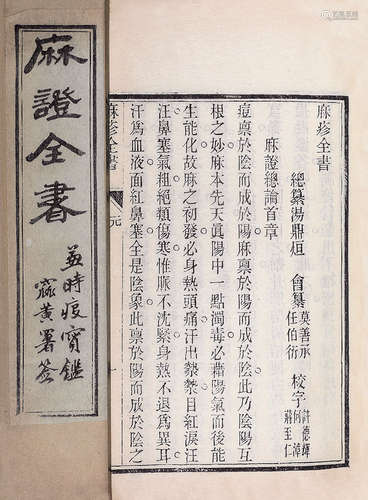 麻證全書
並時疫寶鑑
黃署簽
麻疹全書
總纂湯鼎烜 會纂 莫善承 任伯衍 校字 許德輝 何漳 蔣至仁
麻證總論首章
痘禀於陰而成於陽麻禀於陽而成於陰此乃陰陽互
根之妙麻本先天眞陽中一點濁毒必藉陽氣而後能
生能化故麻之初發必身熱頭痛汗出漐漐目紅淚汪
汪鼻塞氣粗絕類傷寒惟脈不沈緊身熱不退爲異耳
汗爲血液面紅鼻塞全是陰象此禀於陽而成於陰之
麻疹全書
元